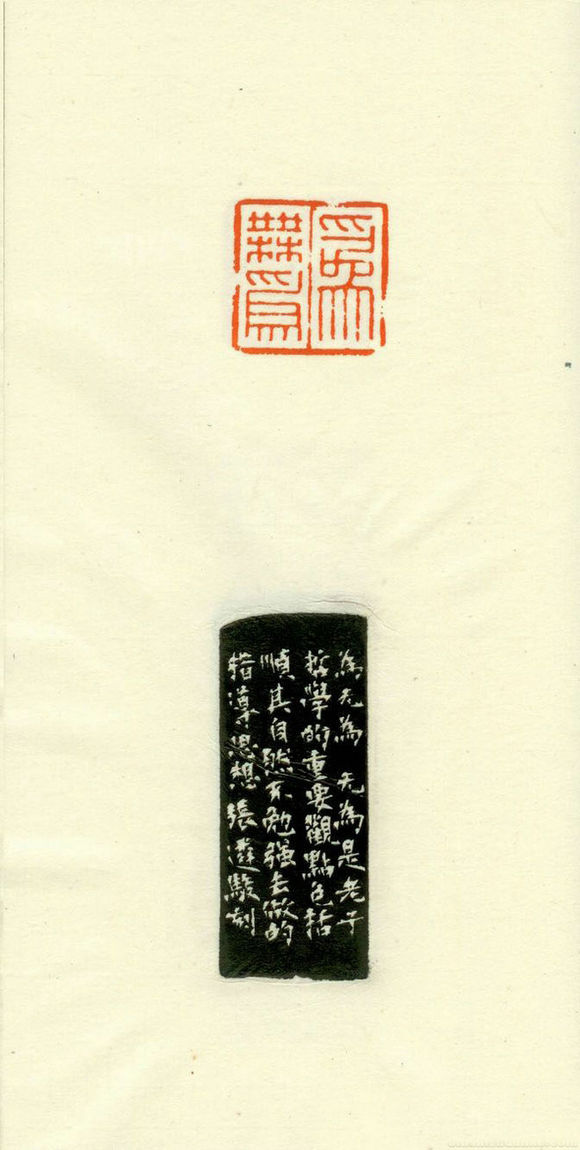 為
無為
為无為 无為是老子
哲學的重要觀點包括
順其自然不勉強去做的
指導思想 張遴駿刻